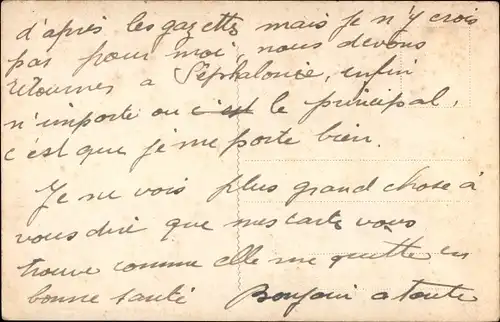 d'après les gazettes mais je n'y crois
pas pour moi, nous devons
retourner a Sephalonie, enfin
n'importe ou c'est le principal,
c'est que je me porte bien.
Je ne vois plus grand chose à
vous dire que mes carte vous
trouve comme elle me quitte en
bonne santé Bonjour a toute